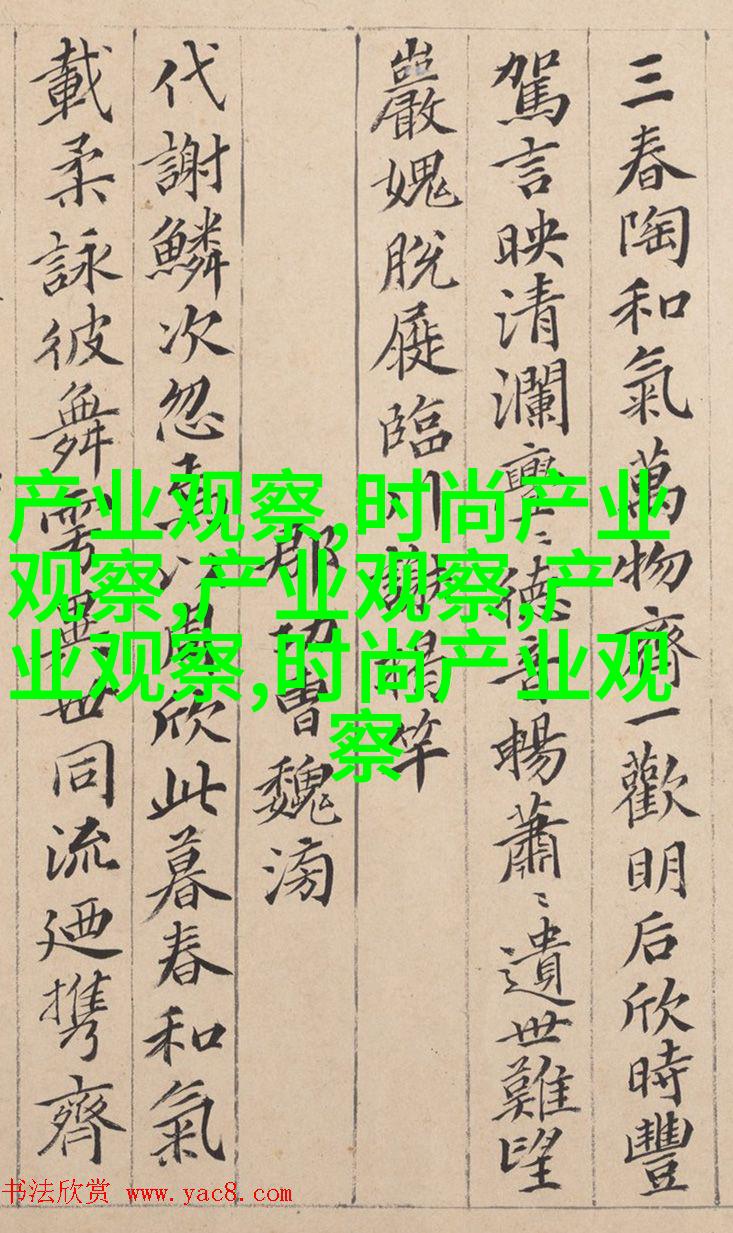 三春陶和氣萬物齊一歡明后欣時豐
駕言映清瀾亹〻德音暢蕭〻遺世難望
巖愧脫屣臨川謝揭竿
郡功曹魏滂
代謝鱗次忽焉以周欣此暮春和氣
載柔詠彼舞雩異世同流廼携齊
产业观察,时尚产业
观察,产业观察,产
业观察,时尚产业观
察
书法欣赏 www.yac8.com